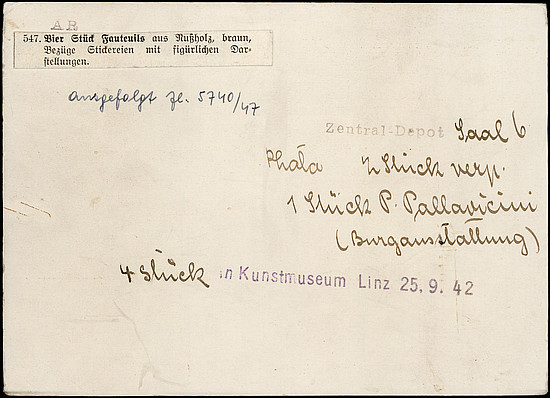 AR
547. Vier Stück Fauteuils aus Nußholz, braun,
Bezüge Stickereien mit figürlichen Dar-
stellungen.
ausgefolgt Zl. 5740/47
Zentral-Depot Saal 6
2 Stück verp.
1 Stück P. Pallavicini
(Burgausstattung)
4 Stück in Kunstmuseum Linz 25. 9. 42